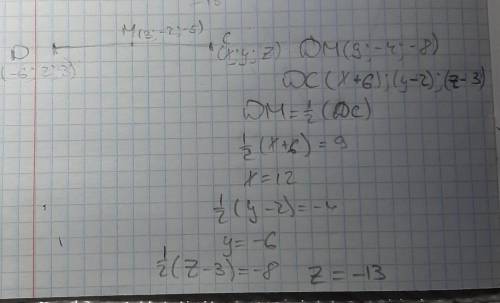 M(3; -2; -5)
D C
(-6; 2; 3) (x; y; z) DM(9; -4; -8)
DC(x+6); (y-2); (z-3)
DM = 1/2 (DC)
1/2 (x+6) = 9
x = 12
1/2 (y-2) = -4
y = -6
1/2 (z-3) = -8 z = -13